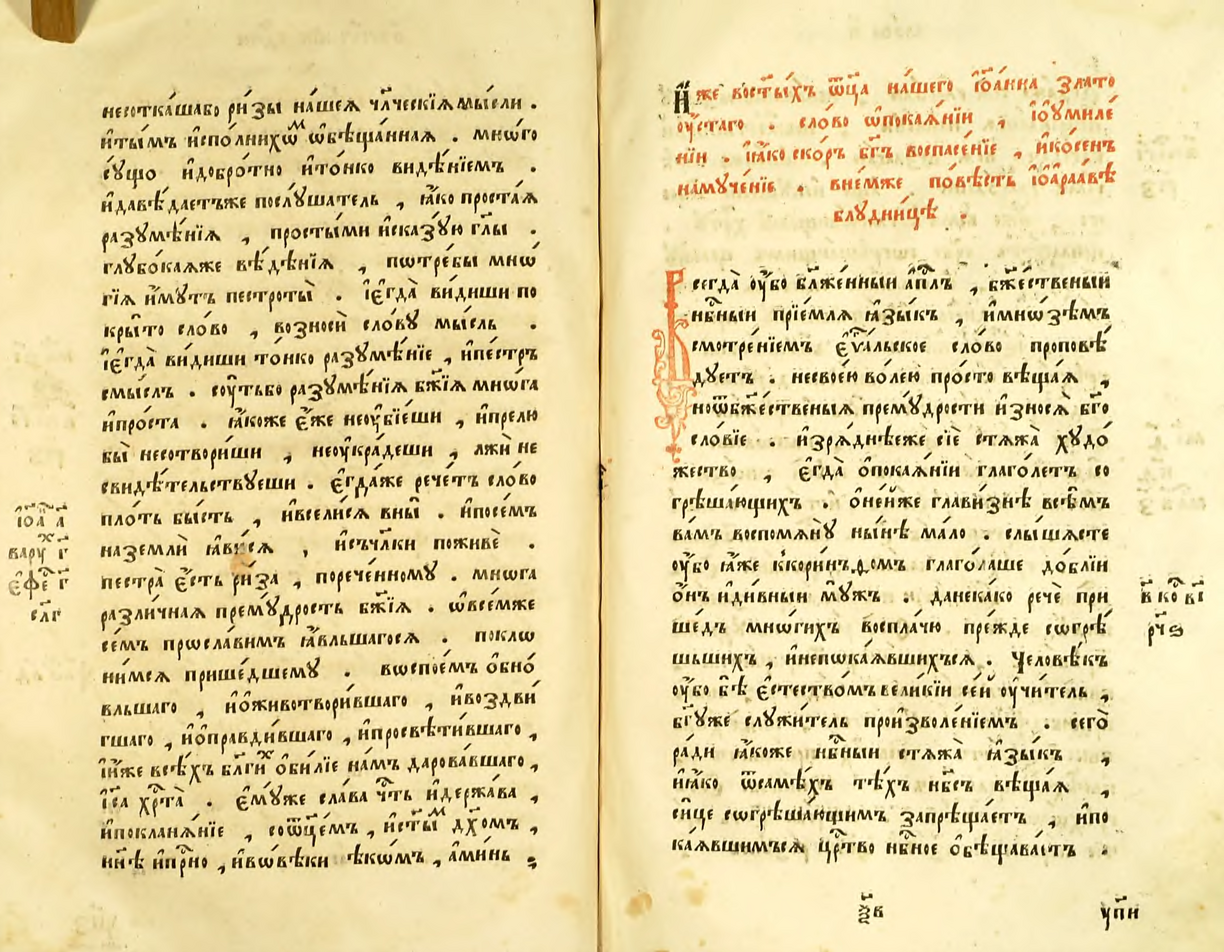 несоткашабо ри́зы на́шеѧ чл҃ческїѧ мы́сли .
и҆ты́мъ и҆спо́лнихѡⷨ ѡ҆бѣща́ннаѧ . мно́гѡ
су́щю и҆добро́тно и҆то́нко видѣ́нїемъ .
и҆давѣ́даетъже послꙋ́шатель , ꙗ҆́ко проста́ѧ
разꙋмѣ́нїѧ , просты́ми и҆сказꙋ́ю гл҃ы .
глꙋбо́каѧже вѣ́дѣнїѧ , пѡтре́бы мнѡ́
гїѧ и҆́мꙋтъ пестроты̀ . і҆є҆гда̀ ви́диши по
кры́то сло́во , возносѝ сло́вꙋ мы́сль .
і҆є҆гда̀ ви́диши то́нко разꙋмѣ́нїе , и҆пе́стръ
смы́слъ . соу҆́тьбо разꙋмѣ́нїѧ бж҃їѧ мнѡ́га
и҆про́ста . ꙗ҆́коже є҆́же неоу҆бїе́ши , и҆прелю
бы̀ несотвори́ши , неоу҆кра́деши , лжѝ не
свидѣ́тельствꙋеши . є҆гда́же рече́тъ сло́во
пло́ть бы́сть , и҆всели́сѧ вны̀ . и҆посе́мъ
наземлѝ ꙗ҆ви́сѧ , и҆съчл҃ки поживѐ .
пестра̀ є҆́сть ри́за , порече́нномꙋ . мнѡ́га
разли́чнаѧ премꙋ́дрость бж҃їѧ . ѡ҆все́мже
се́мъ прѡсла́вимъ ꙗ҆́вльшагосѧ . поклѡ
ни́мсѧ прише́дшемꙋ . вѡспое́мъ ѻ҆бно́
вльшаго , и҆ѻ҆животвори́вшаго , и҆воздви́
гшаго , и҆ѻ҆правди́вшаго , и҆просвѣти́вшаго ,
і҆и҆́же всѣ́хъ бл҃гиⷯ ѻ҆би́лїе на́мъ дарова́вшаго ,
і҆с҃а хрⷭ҇та̀ . є҆мꙋ́же сла́ва чⷭ҇ть и҆держа́ва ,
и҆поклана́нїе , соѿц҃е́мъ , и҆ст҃ыⷨ дх҃омъ ,
нн҃ѣ и҆прⷭ҇но , и҆вѡвѣ́ки вѣкѡ́мъ , а҆ми́нь ;
і҆ѡа҃ а҃
варꙋⷯ г҃
є҆фе҃ г҃
сл҃г
И҆́же вост҃ы́хъ ѿц҃а на́шего і҆ѡа́нна злато
оу҆́стаго . сло́во ѡ҆покаѧ́нїи , і҆ѻу҆миле́
нїи . ꙗ҆́ко ско́ръ бг҃ъ воспасе́нїе , и҆ко́сенъ
намꙋче́нїе . вне́мже по́вѣсть і҆ѻ҆раа́вѣ
блꙋдни́цѣ .
Всегда̀ оу҆́бо бл҃же́нныи а҆пⷭ҇лъ , бж҃е́ственыи
и҆нбⷭ҇ныи прїе́млѧ ꙗ҆зы́къ , и҆мнѡ́зѣмъ
смотре́нїемъ є҆ѵⷢ҇льское сло́во проповѣ́
дꙋетъ . несвое́ю во́лею про́сто вѣща́ѧ ,
ноѿбж҃е́ственыѧ премꙋ́дрости и҆зносѧ̀ бг҃о
сло́вїе . и҆зрѧ́днѣеже сїѐ стѧжа̀ хꙋдо́
жество , є҆гда̀ ѻ҆покаѧ́нїи глаго́летъ со
грѣша́ющихъ . ѻ҆не́йже главизнѣ̀ всѣ̑мъ
ва́мъ воспомѧнꙋ̀ ны́нѣ ма́ло . слы́шасте
оу҆́бо ꙗ҆́же ккори́нѳомъ глаго́лаше до́блїи
ѻ҆́нъ и҆ди́вныи мꙋ́жъ . данека́ко речѐ при
ше́дъ мно́гихъ воспла́чю пре́жде сѡгрѣ́
шьшихъ , и҆непѡка́ѧвшихъсѧ . Человѣ́къ
оу҆́бо бѣ̀ є҆стество́мъ вели́кїи се́й оу҆чи́тель ,
бг҃ꙋ́же слꙋжи́тель произволе́нїемъ . сего̀
ра́ди ꙗ҆́коже нбⷭ҇ныи стѧжа̀ ꙗ҆зы́къ ,
и҆ꙗ҆́ко ѿсамѣ́хъ тѣ́хъ нб҃съ вѣща́ѧ ,
си́це сѡгрѣша́ющимъ запреща́етъ , и҆по
каѧ́вшимъсѧ црⷭ҇тво нбⷭ҇ное ѻ҆бѣщава́етъ .
в҃ ко҃ в҃і
рч҃ѕ
упи